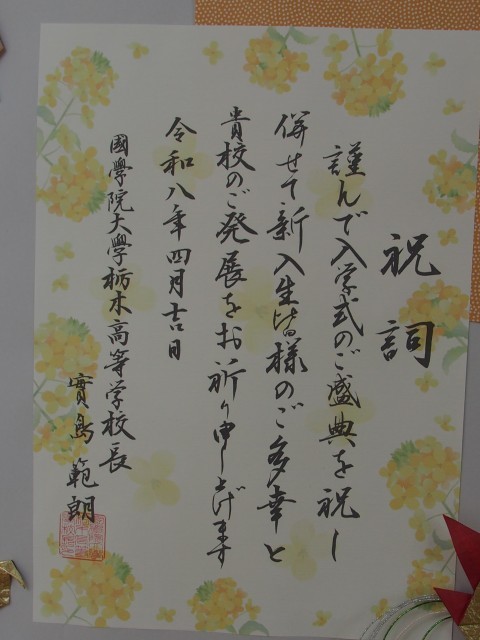 祝詞
謹んで入学式のご盛典を祝し
併せて新入生皆様のご多幸と
貴校のご発展をお祈り申し上げます
令和八年四月吉日
國學院大學栃木高等学校長
實島範朗